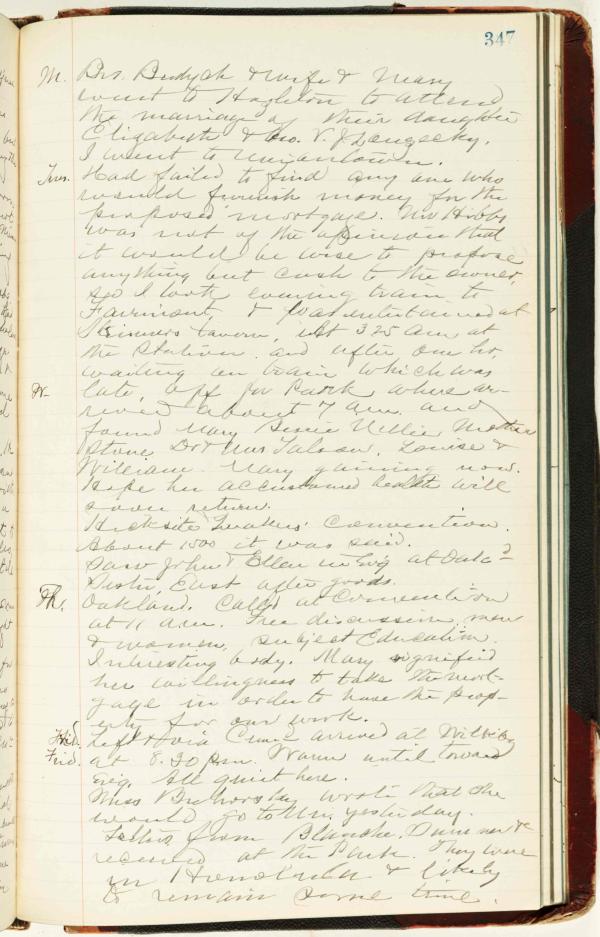 347
M. Brs. & wife & Mary
went to Hazleton to attend
the marriage of their daughter
Elizabeth & Geo. V.
I went to Uniontown.
Tues. Had failed to find any one who
would furnish money for the
proposed mortgage. Mr Hibbs
was not of the opinion that
it would be wise to propose
anything but cash to the owner,
so I took evening train to
Fairmont, & was entertained at
Skinners tavern, left 3 25 am at
the station and after one hr.
waiting on train which was
W. late, off for Park where ar-
rived about 7 am. and
found Mary Bessie Nellie Mother
Stone Dr & Mrs Louise &
William. Mary gaining now.
Hope her accustomed health will
soon return.
Hicksite Quakers' Convention.
About 1500 it was said.
Saw John & Ellen at Oak-
Sister, East after goods.
Th. Oakland. Called at Convention
at 11 a.m. Free discussion, men
& women, subject Education.
Interesting body. Mary signified
her willingness to take the mort-
gage in order to have the prop-
erty for our work.
Frid. Left & via arrived at
Frid. at 8.20 pm. Warm until toward
Evg. All quiet here.
Miss wrote that she
would go to yesterday.
Letters from Blanche,
received at the Park. They were
in Honolulu & likely
to remain some time.